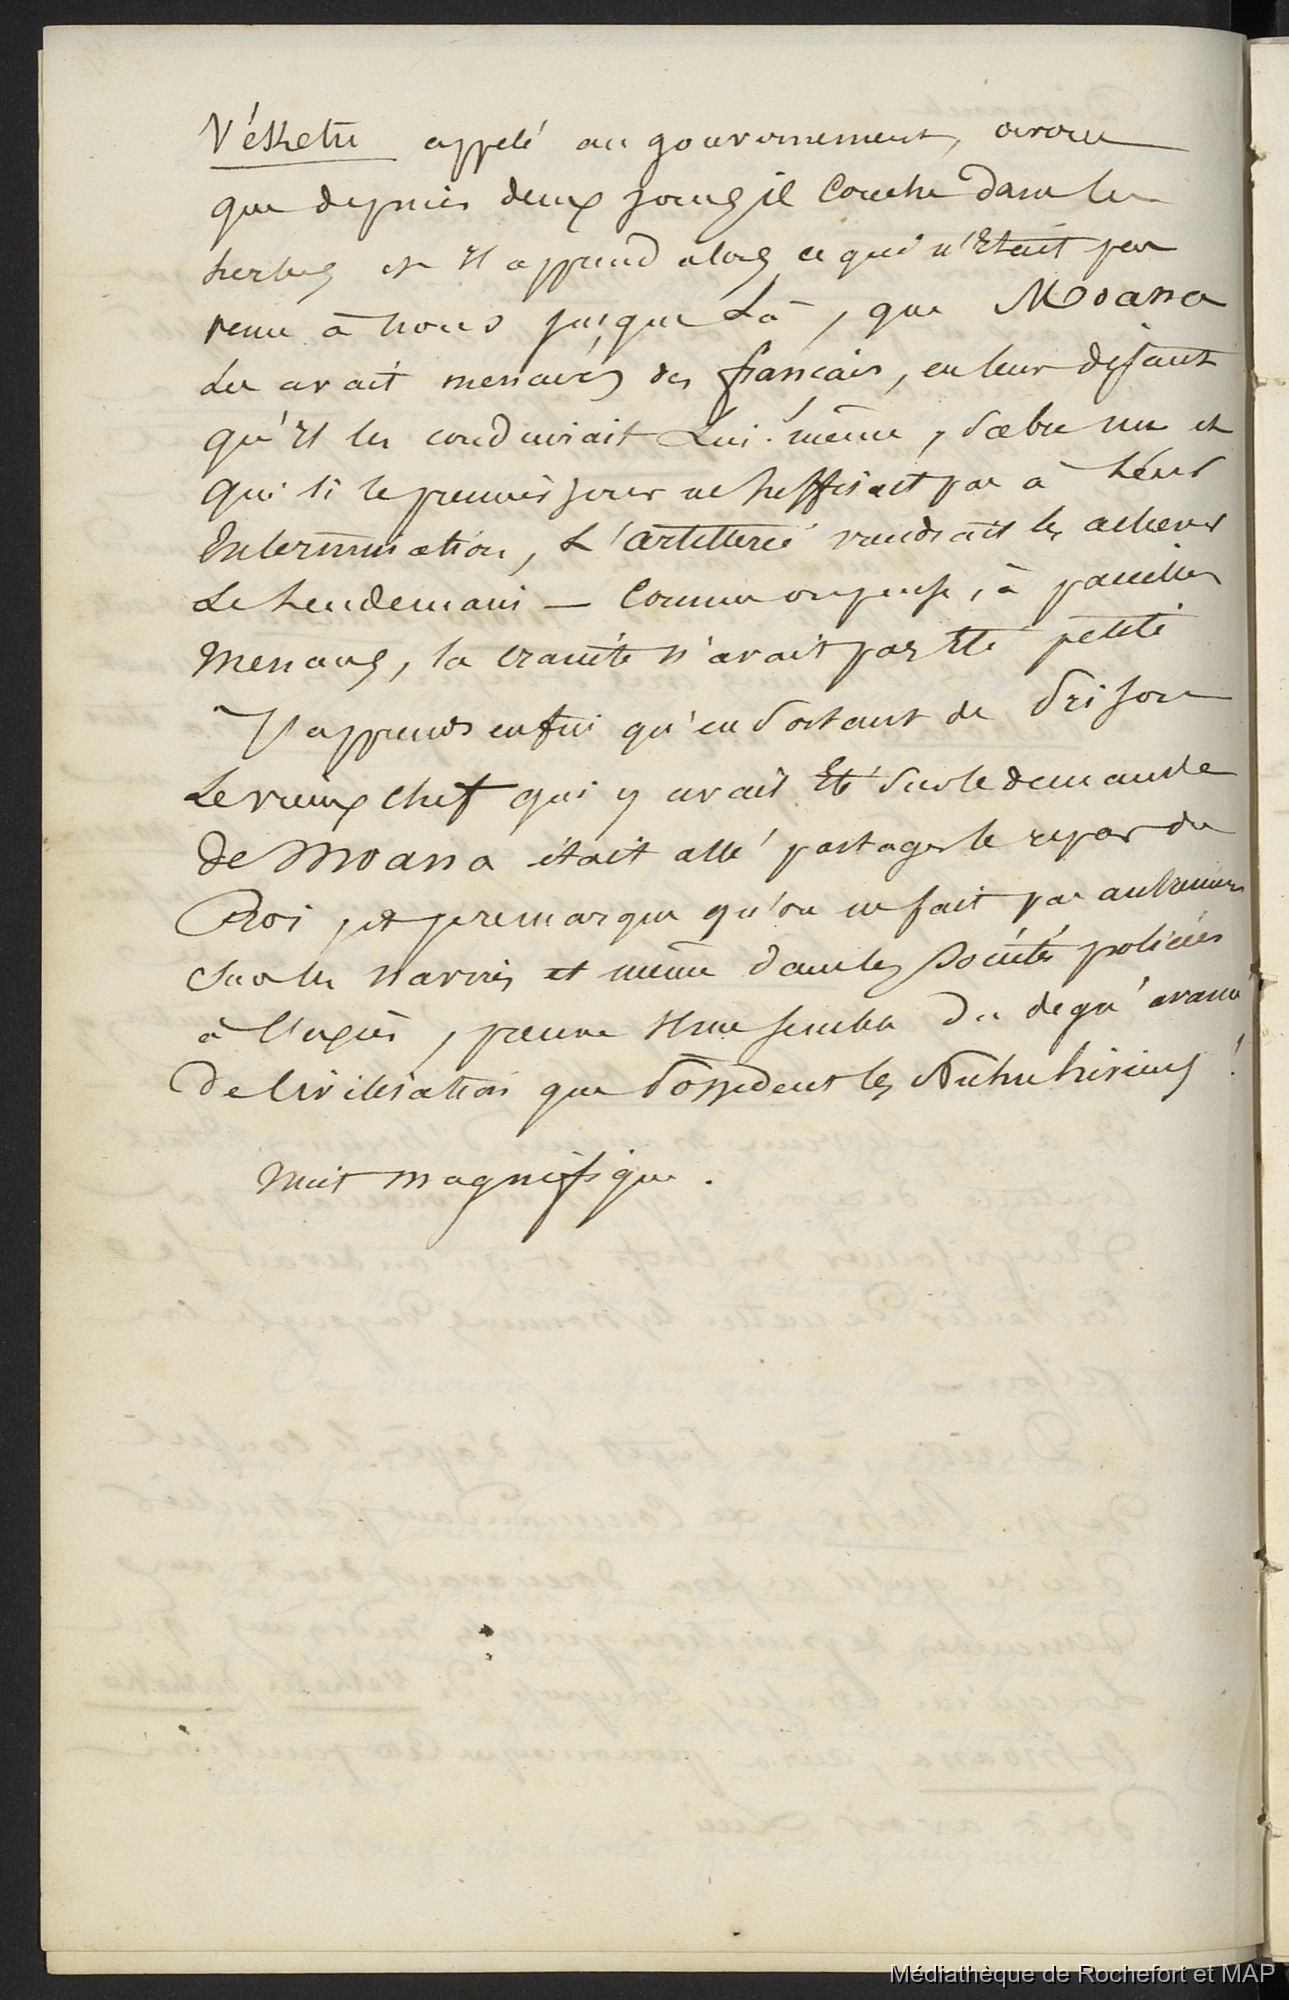 Vékétu appelé au gouvernement, avoue
que depuis deux jours il couche dans les
herbes et Il apprend alors ce qui n'Etait par
venu à nous jusque Là, que Moana
Les avait menacés des français, en leur disant
qu'Il les conduirait Lui-même, sabre nu et
que si le premier jour ne suffisait pas à Leur
Extermination, L'artillerie viendrait les achever
Le Lendemain — Comme on pense, à pareilles
Menaces, la crainte n'avait pas Eté petite
J'apprends enfin qu'en sortant de Prison
Le vieux chef qui y avait Eté sur la demande
de Moana était allé partager le repas du
Roi, et je remarque qu'on ne fait pas autrement
sur les navires et même dans les Sociétés policées
à l'excès, preuve Il me semble du degré avancé
de Civilisation que Possèdent les Nuhuhiviens !
Nuit magnifique.
Médiathèque de Rochefort et MAP